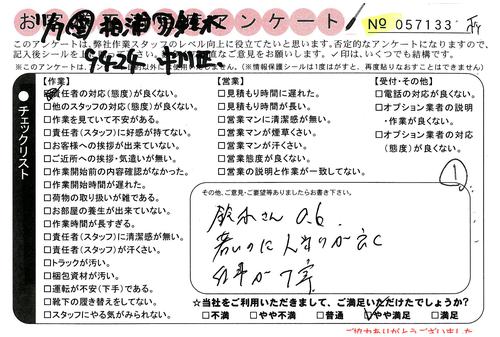 お客様アンケート!
No 057133
このアンケートは、弊社作業スタッフのレベル向上に役立てたいと思います。否定的なアンケートになりますので、
記入後シールを
ご意見をお願いします。✓印は、いくつでも結構です。
(※情報保護シールは1度はがすと、再度貼りなおすことはできません)
チェックリスト
【作業】
責任者の対応(態度)が良くない。
□他のスタッフの対応(態度)が良くない。
□作業を見ていて不安がある。
□責任者(スタッフ)に好感が持てない。
□お客様への挨拶が出来ていない。
□ご近所への挨拶・気遣いが無い。
□作業開始前の内容確認がなかった。
□作業開始時間が遅れた。
□荷物の取り扱いが雑である。
□お部屋の養生が出来ていない。
□作業時間が長すぎる。
□責任者(スタッフ)に清潔感が無い。
□責任者(スタッフ)が汗くさい。
□トラックが汚い。
□梱包資材が汚い。
□運転が不安(下手)である。
□靴下の履き替えをしてない。
□スタッフにやる気がみられない。
【営業】
□見積もり時間に遅れた。
□見積もり時間が長い。
□営業マンに清潔感が無い。
□営業マンが煙草くさい。
□営業マンが汗くさい。
□営業態度が良くない。
□営業の説明と作業が一致してない。
【受付・その他】
□電話の対応が良くない。
□オプション業者の説明
・作業が良くない。
□オプション業者の対応
(態度)が良くない。
1
その他、ご意見・ご要望等ありましたらお書き下さい。
鈴木さん
若いのに人あたりが
仕事が丁寧
☆当社をご利用いただきまして、ご満足いただけたでしょうか?
□不満 □やや不満 □普通 ☑やや満足 □満足
ご協力ありがとうございました